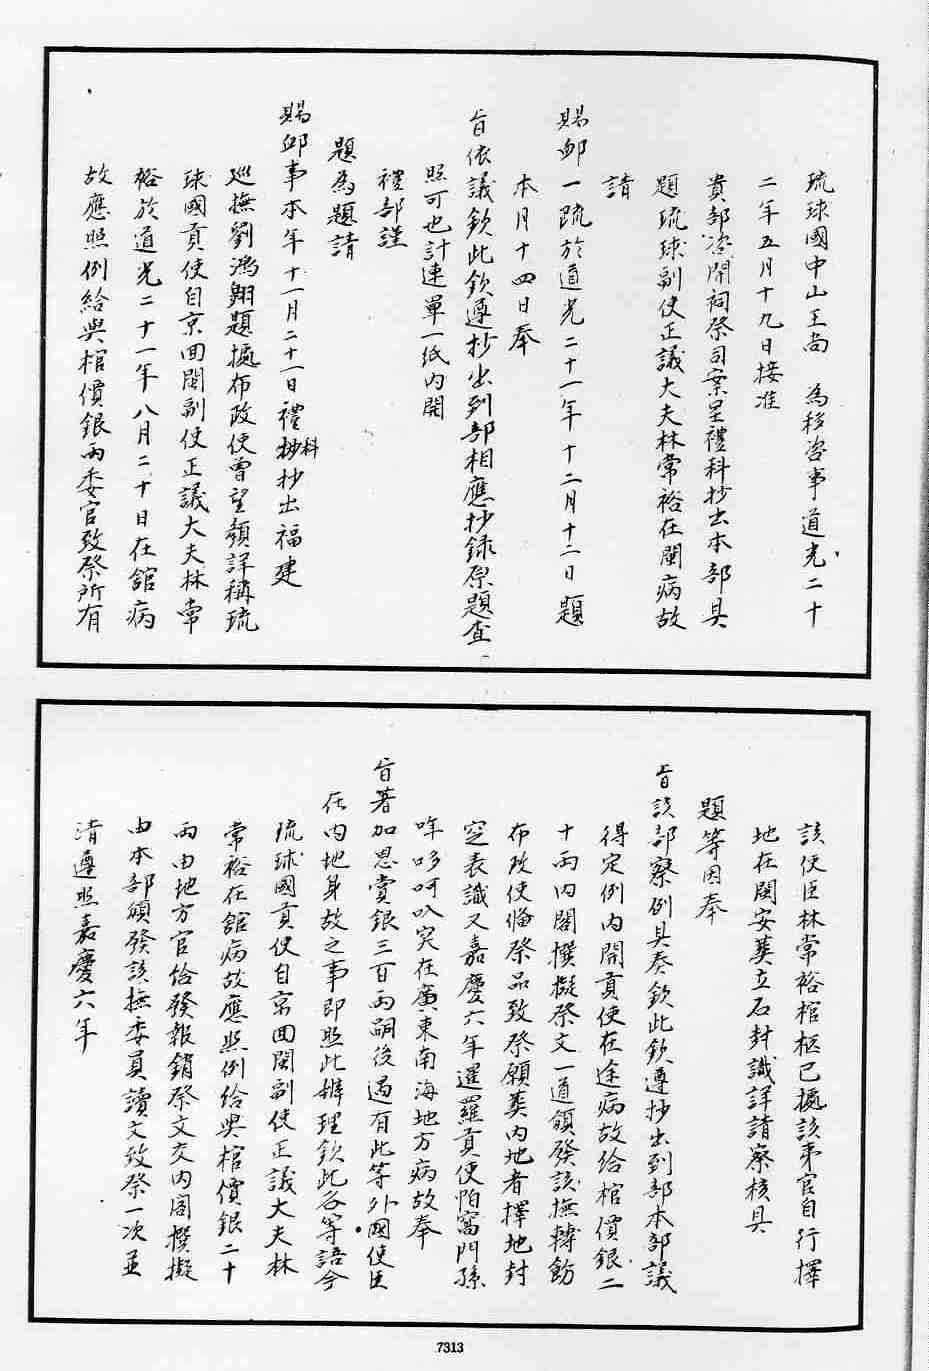 琉球國中山王尚　為移咨事道光二十
二年五月十九日接准
貴部咨開祠祭司案呈禮科抄出本部具
題琉球副使正議大夫林常裕在閩病故
請
賜卹一疏於道光二十一年十二月十二日題
本月十四日奉
旨依議欽此欽遵抄出到部相應抄錄原題查
照可也計連單一紙內開
禮部謹
題為題請
賜卹事本年十一月二十一日禮科抄出福建
巡撫劉鴻翱題據布政使曾望顏詳稱琉
球國貢使自京回閩副使正議大夫林常
裕於道光二十一年八月二十日在舘病
故應照例給與棺價銀兩委官致祭所有
該使臣林常裕棺柩已據該弟官自行擇
地在閩安葬立石封識詳請察核具
題等因奉
旨該部察例具奏欽此欽遵抄出到部本部議
得定例內開貢使在途病故給棺價銀二
十兩內閣撰擬祭文一道頒發該撫轉飭
布政使備祭品致祭願葬內地者擇地封
窆表識又嘉慶六年暹羅貢使怕窩門孫
哖哆呵叺突在廣東南海地方病故奉
旨著加恩賞銀三百兩嗣後遇有此等外國使臣
在內地身故之事即照此辦理欽此各等語今
琉球國貢使自京回閩副使正議大夫林
常裕在舘病故應照例給與棺價銀二十
兩由地方官給發報銷祭文交內閣撰擬
由本部頒發該撫委員讀文致祭一次並
請遵照嘉慶六年
7313